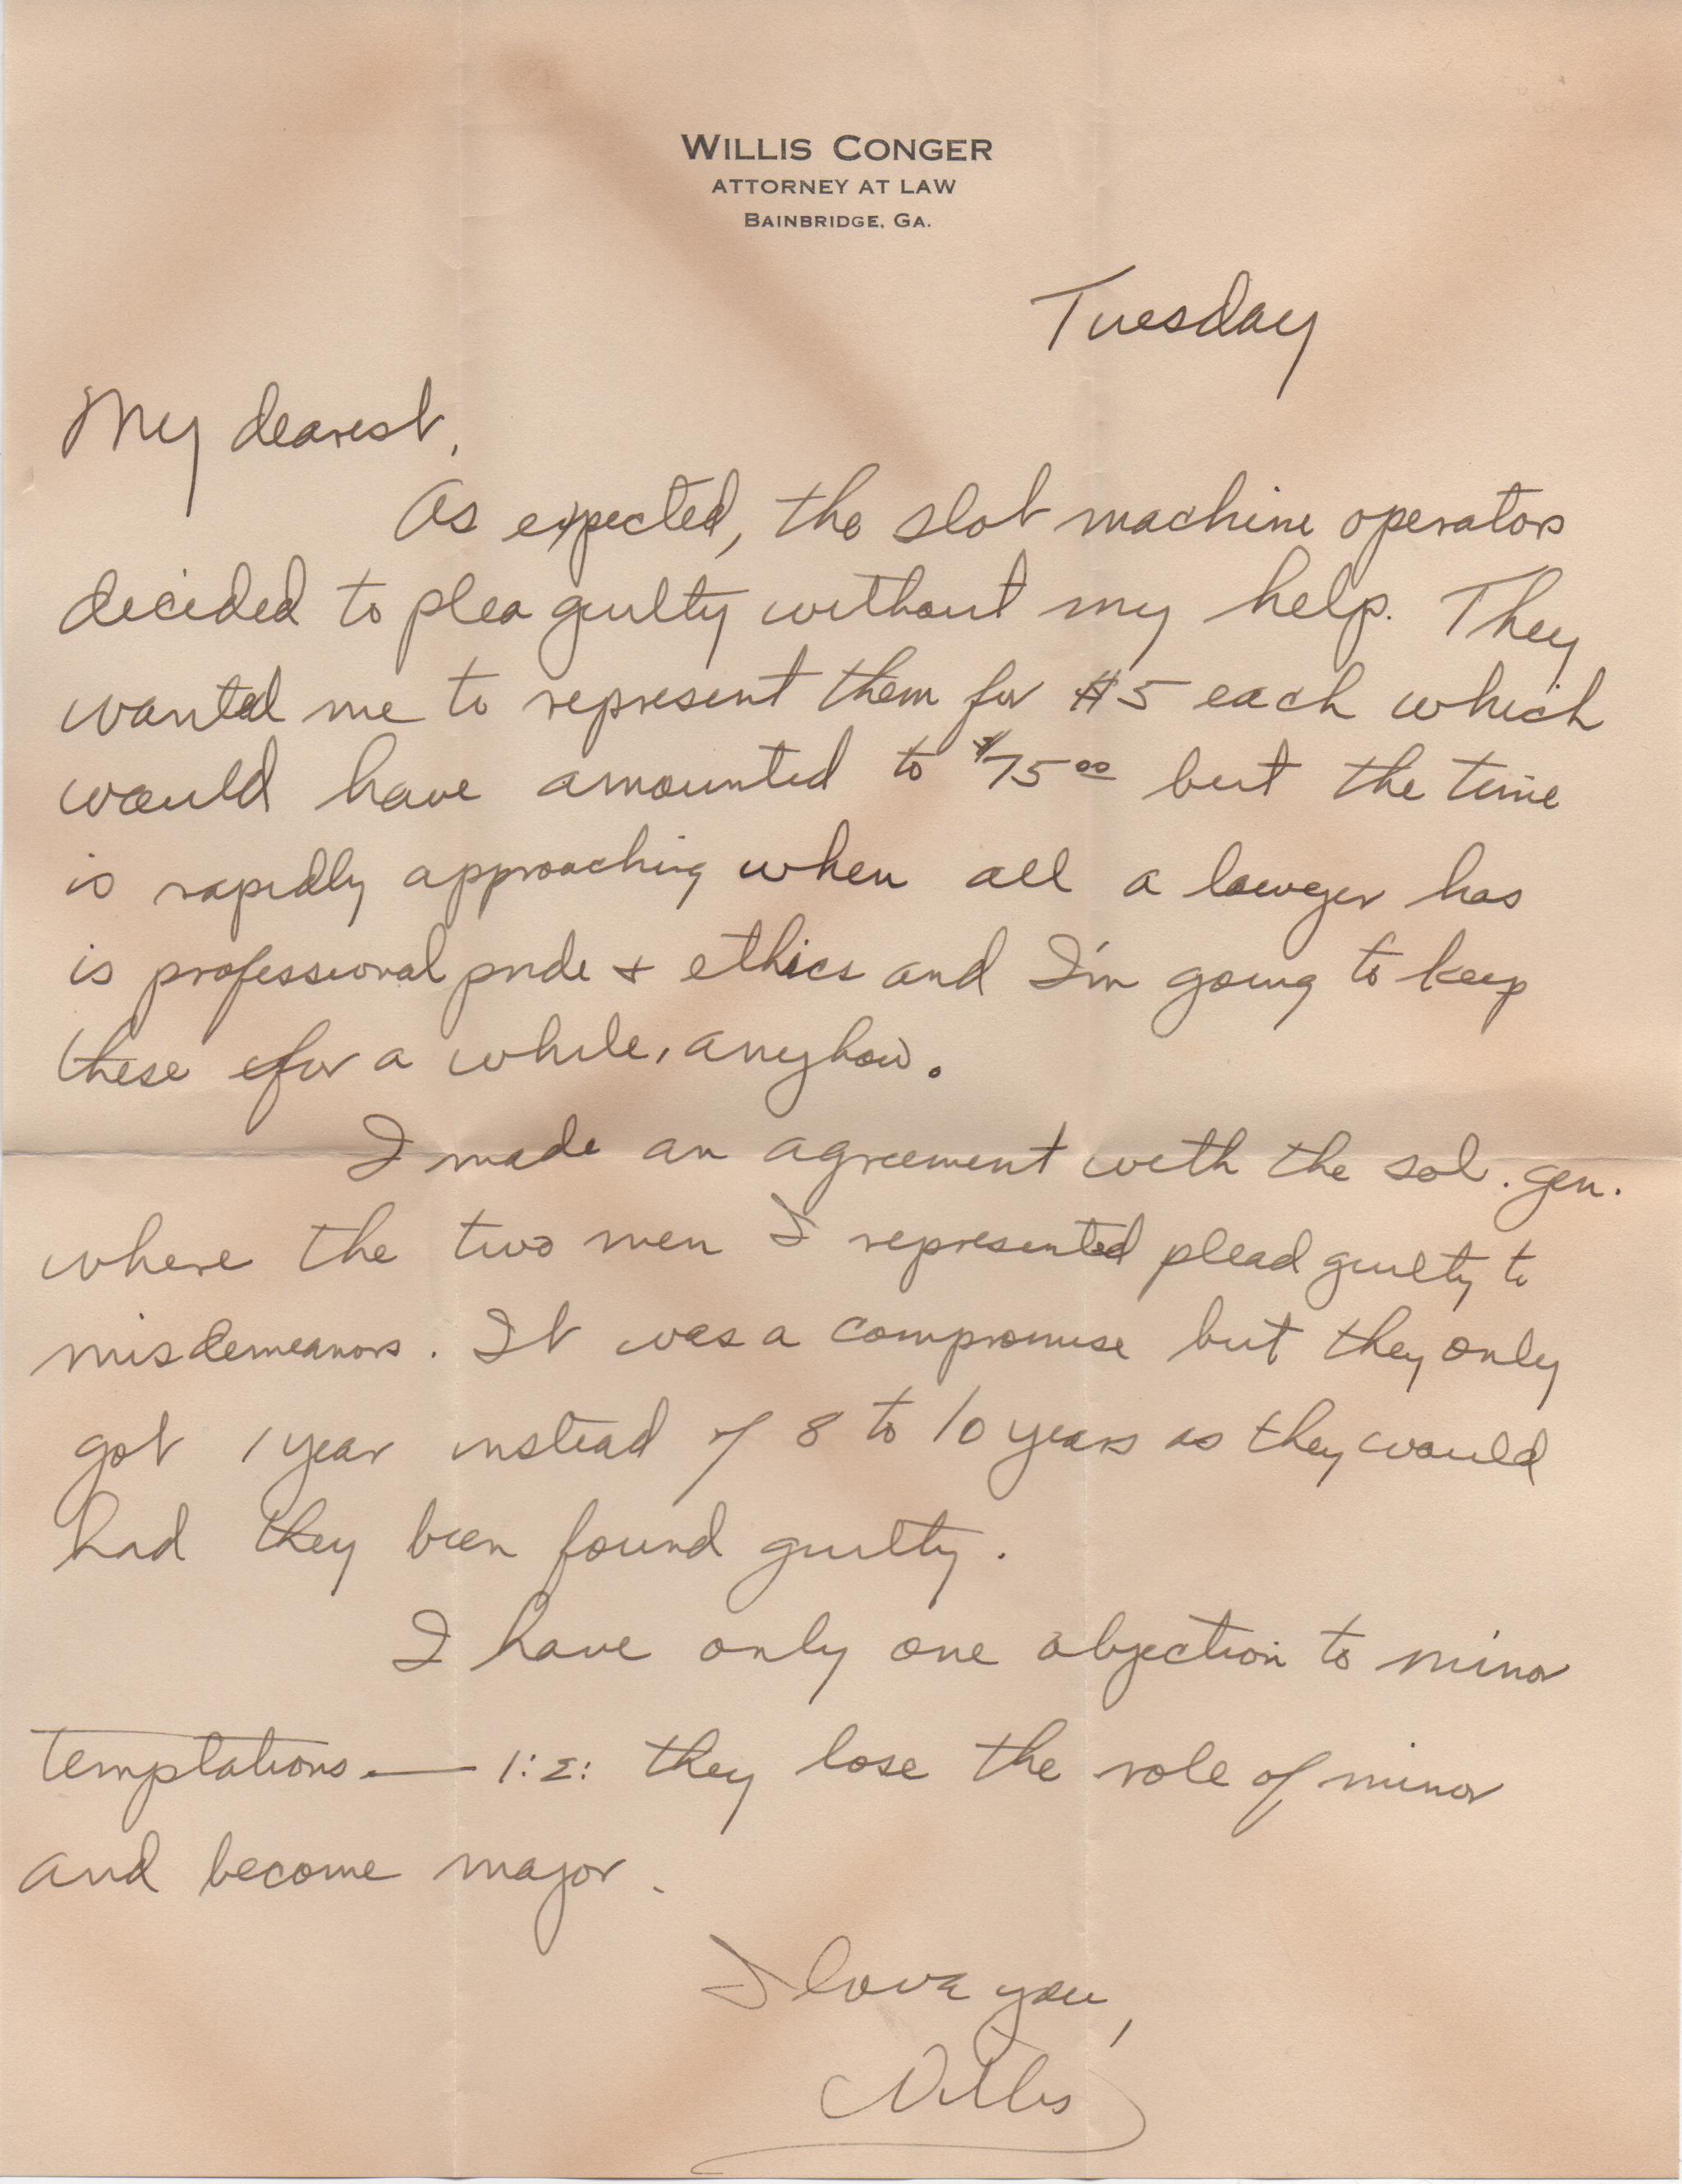 WILLIS CONGER
ATTORNEY AT LAW
BAINBRIDGE, GA.
Tuesday
My dearest,
As expected, the slot machine operators
decided to plea guilty without my help. They
wanted me to represent them for $5 each which
would have amounted to $75.00 but the time
is rapidly approaching when all a lawyer has
is professional pride + ethics and I'm going to keep
these for a while, anyhow.
I made an agreement with the sol. gen.
where the two men I represented plead guilty to
misdemeanors. It was a compromise but they only
got 1 year instead of 8 to 10 years as they would
had they been found guilty.
I have only one objection to minor
temptations. — I:E: they lose the role of minor
and become major.
I love you,
Willis